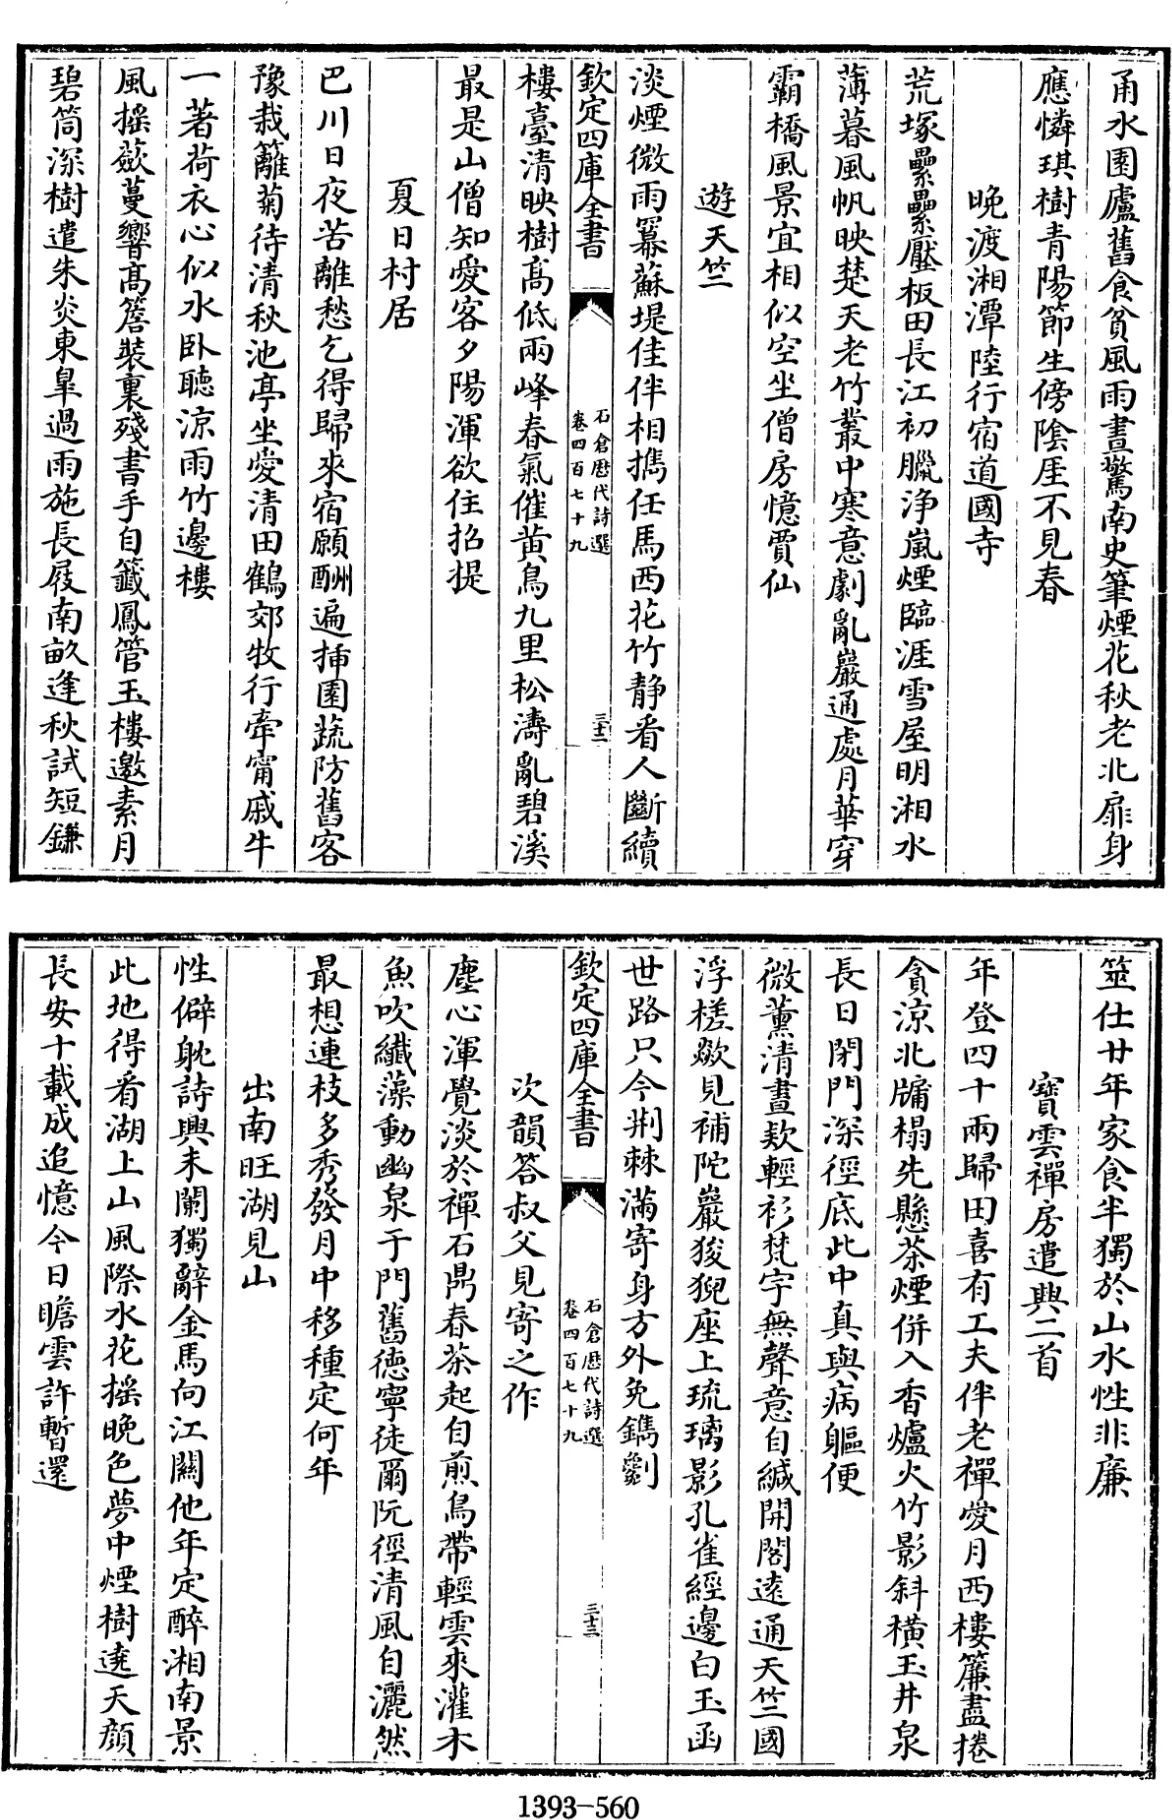 甬水園廬舊食貧風雨晝驚南史筆煙花秋老北扉身
應憐琪樹青陽節生傍陰厓不見春
晚渡湘潭陸行宿道國寺
荒塚纍纍壓板田長江初臘淨嵐煙臨涯雪屋明湘水
薄暮風帆映楚天老竹叢中寒意劇亂巖通處月華穿
霸橋風景宜相似空坐僧房憶賈仙
遊天竺
淡煙微雨羃蘇堤佳伴相攜任馬西花竹靜看人斷續
欽定四庫全書
石倉歷代詩選
卷四百七十九
三十二
樓臺清映樹髙低兩峰春氣催黄鳥九里松濤亂碧溪
最是山僧知愛客夕陽渾欲住招提
夏日村居
巴川日夜苦離愁乞得歸來宿願酬遍插園蔬防舊客
豫栽籬菊待清秋池亭坐愛清田鶴郊牧行牽甯戚牛
一著荷衣心似水卧聽涼雨竹邊樓
風揺蔌蔓響髙簷裝裏殘書手自籤鳳管玉樓邀素月
碧筒深樹遣朱炎東臯過雨施長屐南畝逢秋試短鎌
筮仕廿年家食半獨於山水性非廉
寳雲禪房遣興二首
年登四十兩歸田喜有工夫伴老禪愛月西樓簾盡捲
貪涼北牖榻先懸茶煙併入香爐火竹影斜橫玉井泉
長日閉門深徑底此中真與病軀便
微薰清晝欵輕衫梵宇無聲意自緘開閣逺通天竺國
浮槎歘見補陀巖狻猊座上琉璃影孔雀經邊白玉函
世路只今荆棘滿寄身方外免鐫劖
欽定四庫全書
石倉歷代詩選
卷四百七十九
三十三
次韻答叔父見寄之作
塵心渾覺淡於禪石鼎春茶起自煎鳥帶輕雲來灌木
魚吹纖藻動幽泉于門舊徳寧徒爾阮徑清風自灑然
最想連枝多秀發月中移種定何年
出南旺湖見山
性僻躭詩興未闌獨辭金馬向江闗他年定醉湘南景
此地得看湖上山風際水花揺晚色夢中煙樹遶天顔
長安十載成追憶今日瞻雲許暫還
1393-560